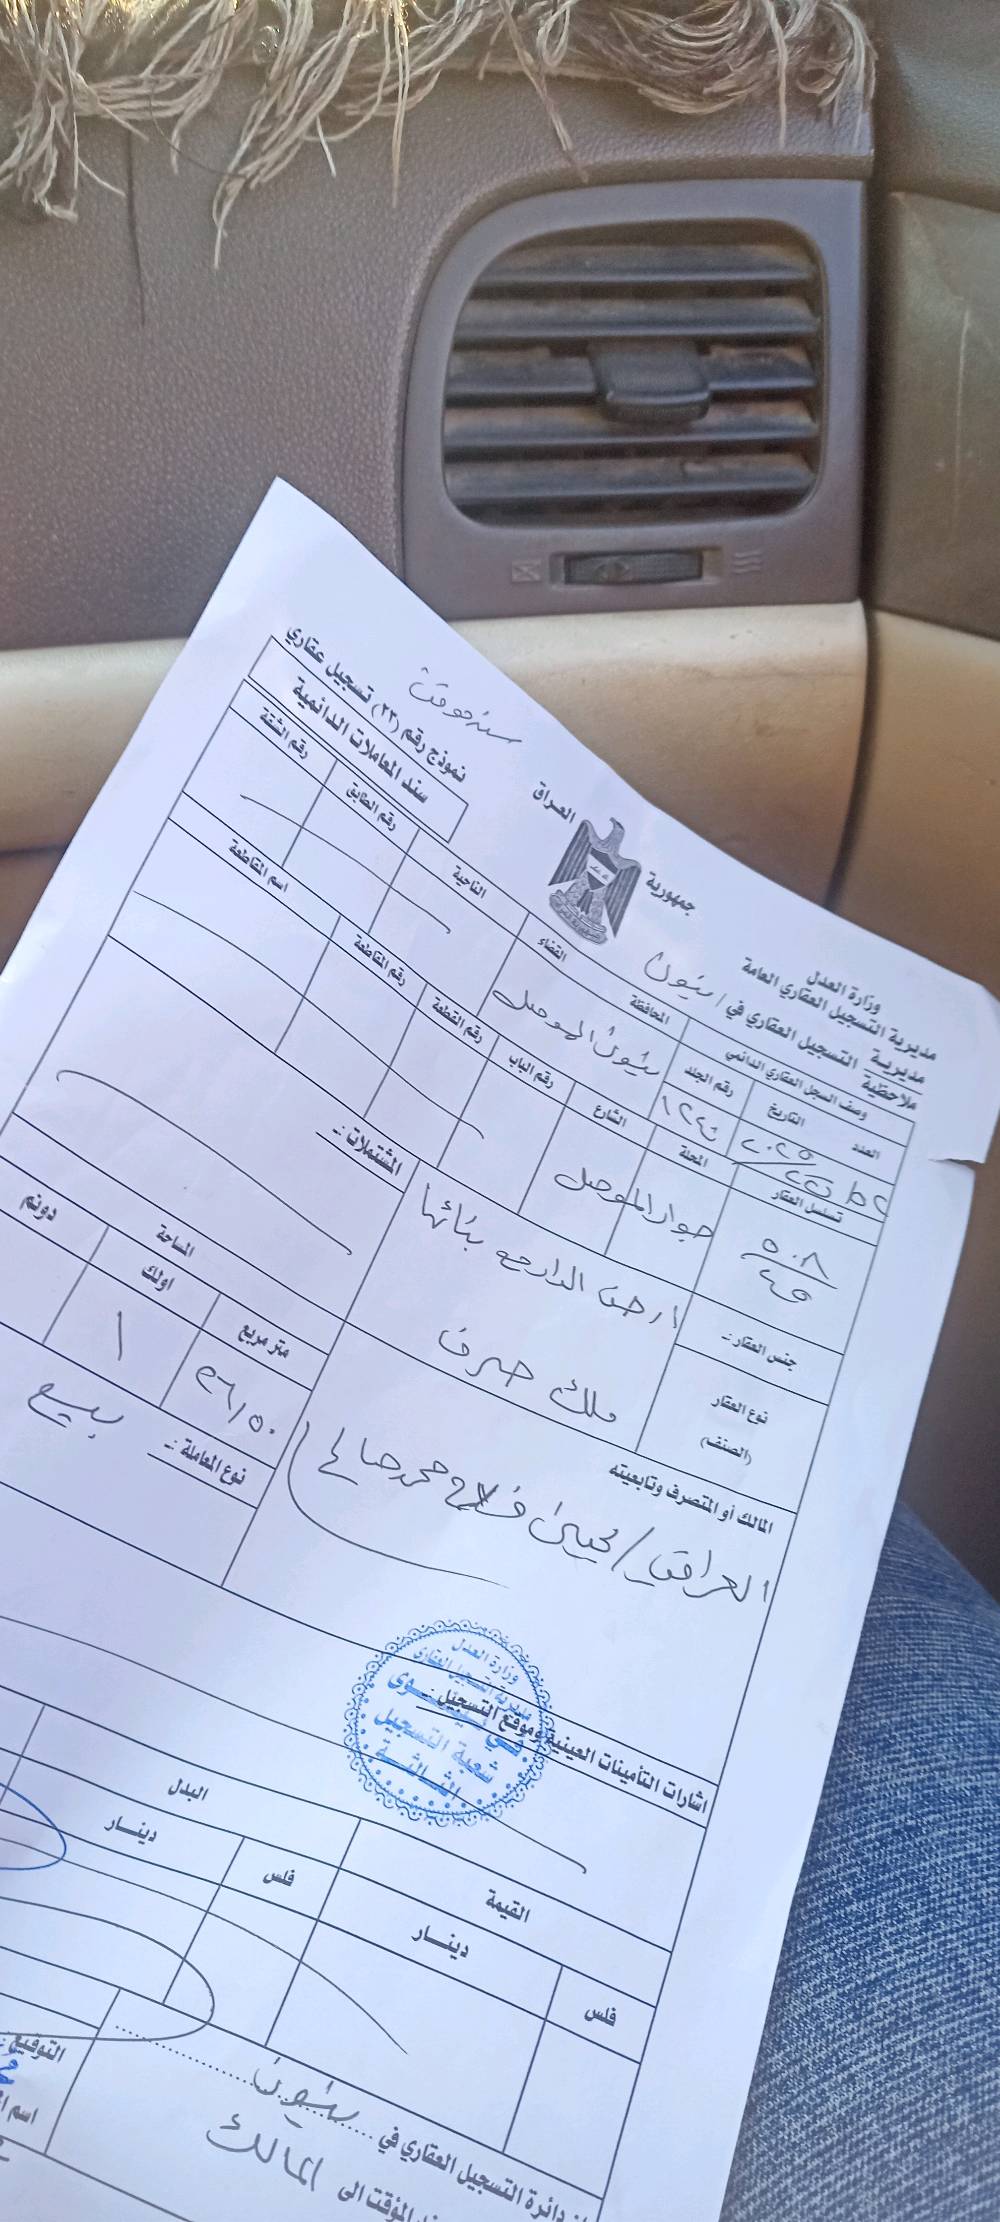 سند مؤقت
نموذج رقم (٢٣) تسجيل عقاري
سند المعاملات الدائمية
جمهورية العراق
وزارة العدل
مديرية التسجيل العقاري العامة
مديرية التسجيل العقاري في /
ملاحظية
وصف السجل العقاري الدائمي
المحافظة
القضاء
الناحية
رقم الطابق
رقم الشقة
العدد
التاريخ
رقم الجلد
الموصل
تسلسل العقار
المحلة
الشارع
رقم الباب
رقم القطعة
رقم المقاطعة
اسم المقاطعة
٥٠٨
جوار الموصل
جنس العقار :-
ارض الدارجه بنائها
المشتملات :-
نوع العقار
(الصنف)
ملك صرف
المساحة
متر مربع
اولك
دونم
٢٦/٥٠
١
المالك أو المتصرف وتابعيته
العراقي / يحيى فلاح محمد صالح
نوع المعاملة :-
بيع
اشارات التأمينات العينية وموقع التسجيل :-
وزارة العدل
مديرية التسجيل العقاري
شعبة التسجيل
الثالثة
القيمة
البدل
فلس
دينار
فلس
دينار
دائرة التسجيل العقاري في
المؤقت الى المالك
التوقيع